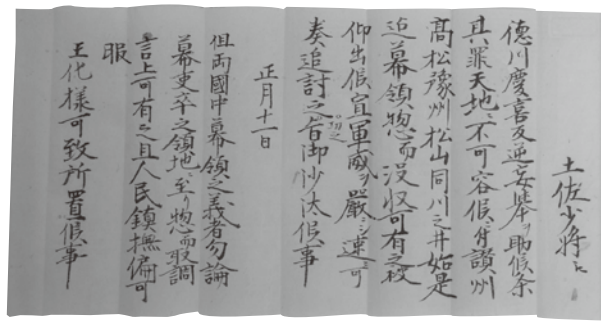 土佐少将え
德川慶喜反逆妄挙ヲ助候条
其罪天地ニ不可容候ニ付讃州
高松豫州松山同川之井始是
迄幕領惣而没収可有之被
仰出候宜軍威ヲ嚴ニシ速ニ可
奏追討之旨御沙汰候事
正月十一日
但両國中幕領之義者勿論
幕吏卒之領地ニ至リ惣而取調
言上可有之且人民鎮撫偏可
服
王化様可致所置候事